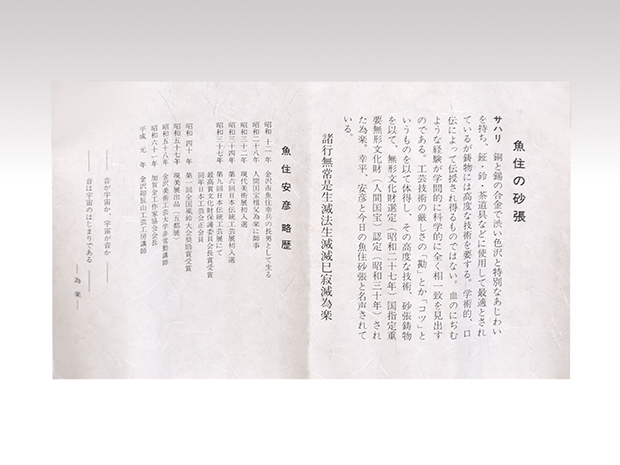 魚住の砂張
サハリ　銅と錫の合金で渋い色沢と特別なあじわい
を持ち、鉦・鈴・茶道具などに使用して最適とされ
ているが鋳物には高度な技術を要する。学術的、口
伝によって伝授され得るものではない。血のにぢむ
ような経験が学問的に科学的に全く相一致を見出す
のである。工芸技術の厳しさの「勘」とか「コツ」と
いうものを以て体得し、その高度な技術、砂張鋳物
を以て、無形文化財選定（昭和二十七年）国指定重
要無形文化財（人間国宝）認定（昭和三十年）され
た為楽。幸平、安彦と今日の魚住砂張と名声されて
いる。
諸行無常是生滅法生滅滅已寂滅為楽
魚住安彦　略歴
昭和十二年　金沢市魚住幸兵の長男として生る
昭和二十八年　人間国宝祖父為楽に師事
昭和三十二年　現代美術展初入選
昭和三十四年　第六回日本伝統工芸展初入選
昭和三十七年　第九回日本伝統工芸展にて
最高賞文化財保護委員会長賞受賞
同年日本工芸会正会員
昭和四十年　第一回全国風鈴大会奨励賞受賞
昭和五十七年　現美展出品（五都展）
昭和五十八年　金沢美術工芸大学非常勤講師
昭和六十一年　加賀金工作家協会会長
平成元年　金沢卯辰山工芸工房講師
――音が宇宙か、宇宙が音か――
――音は宇宙のはじまりである――
――為楽――